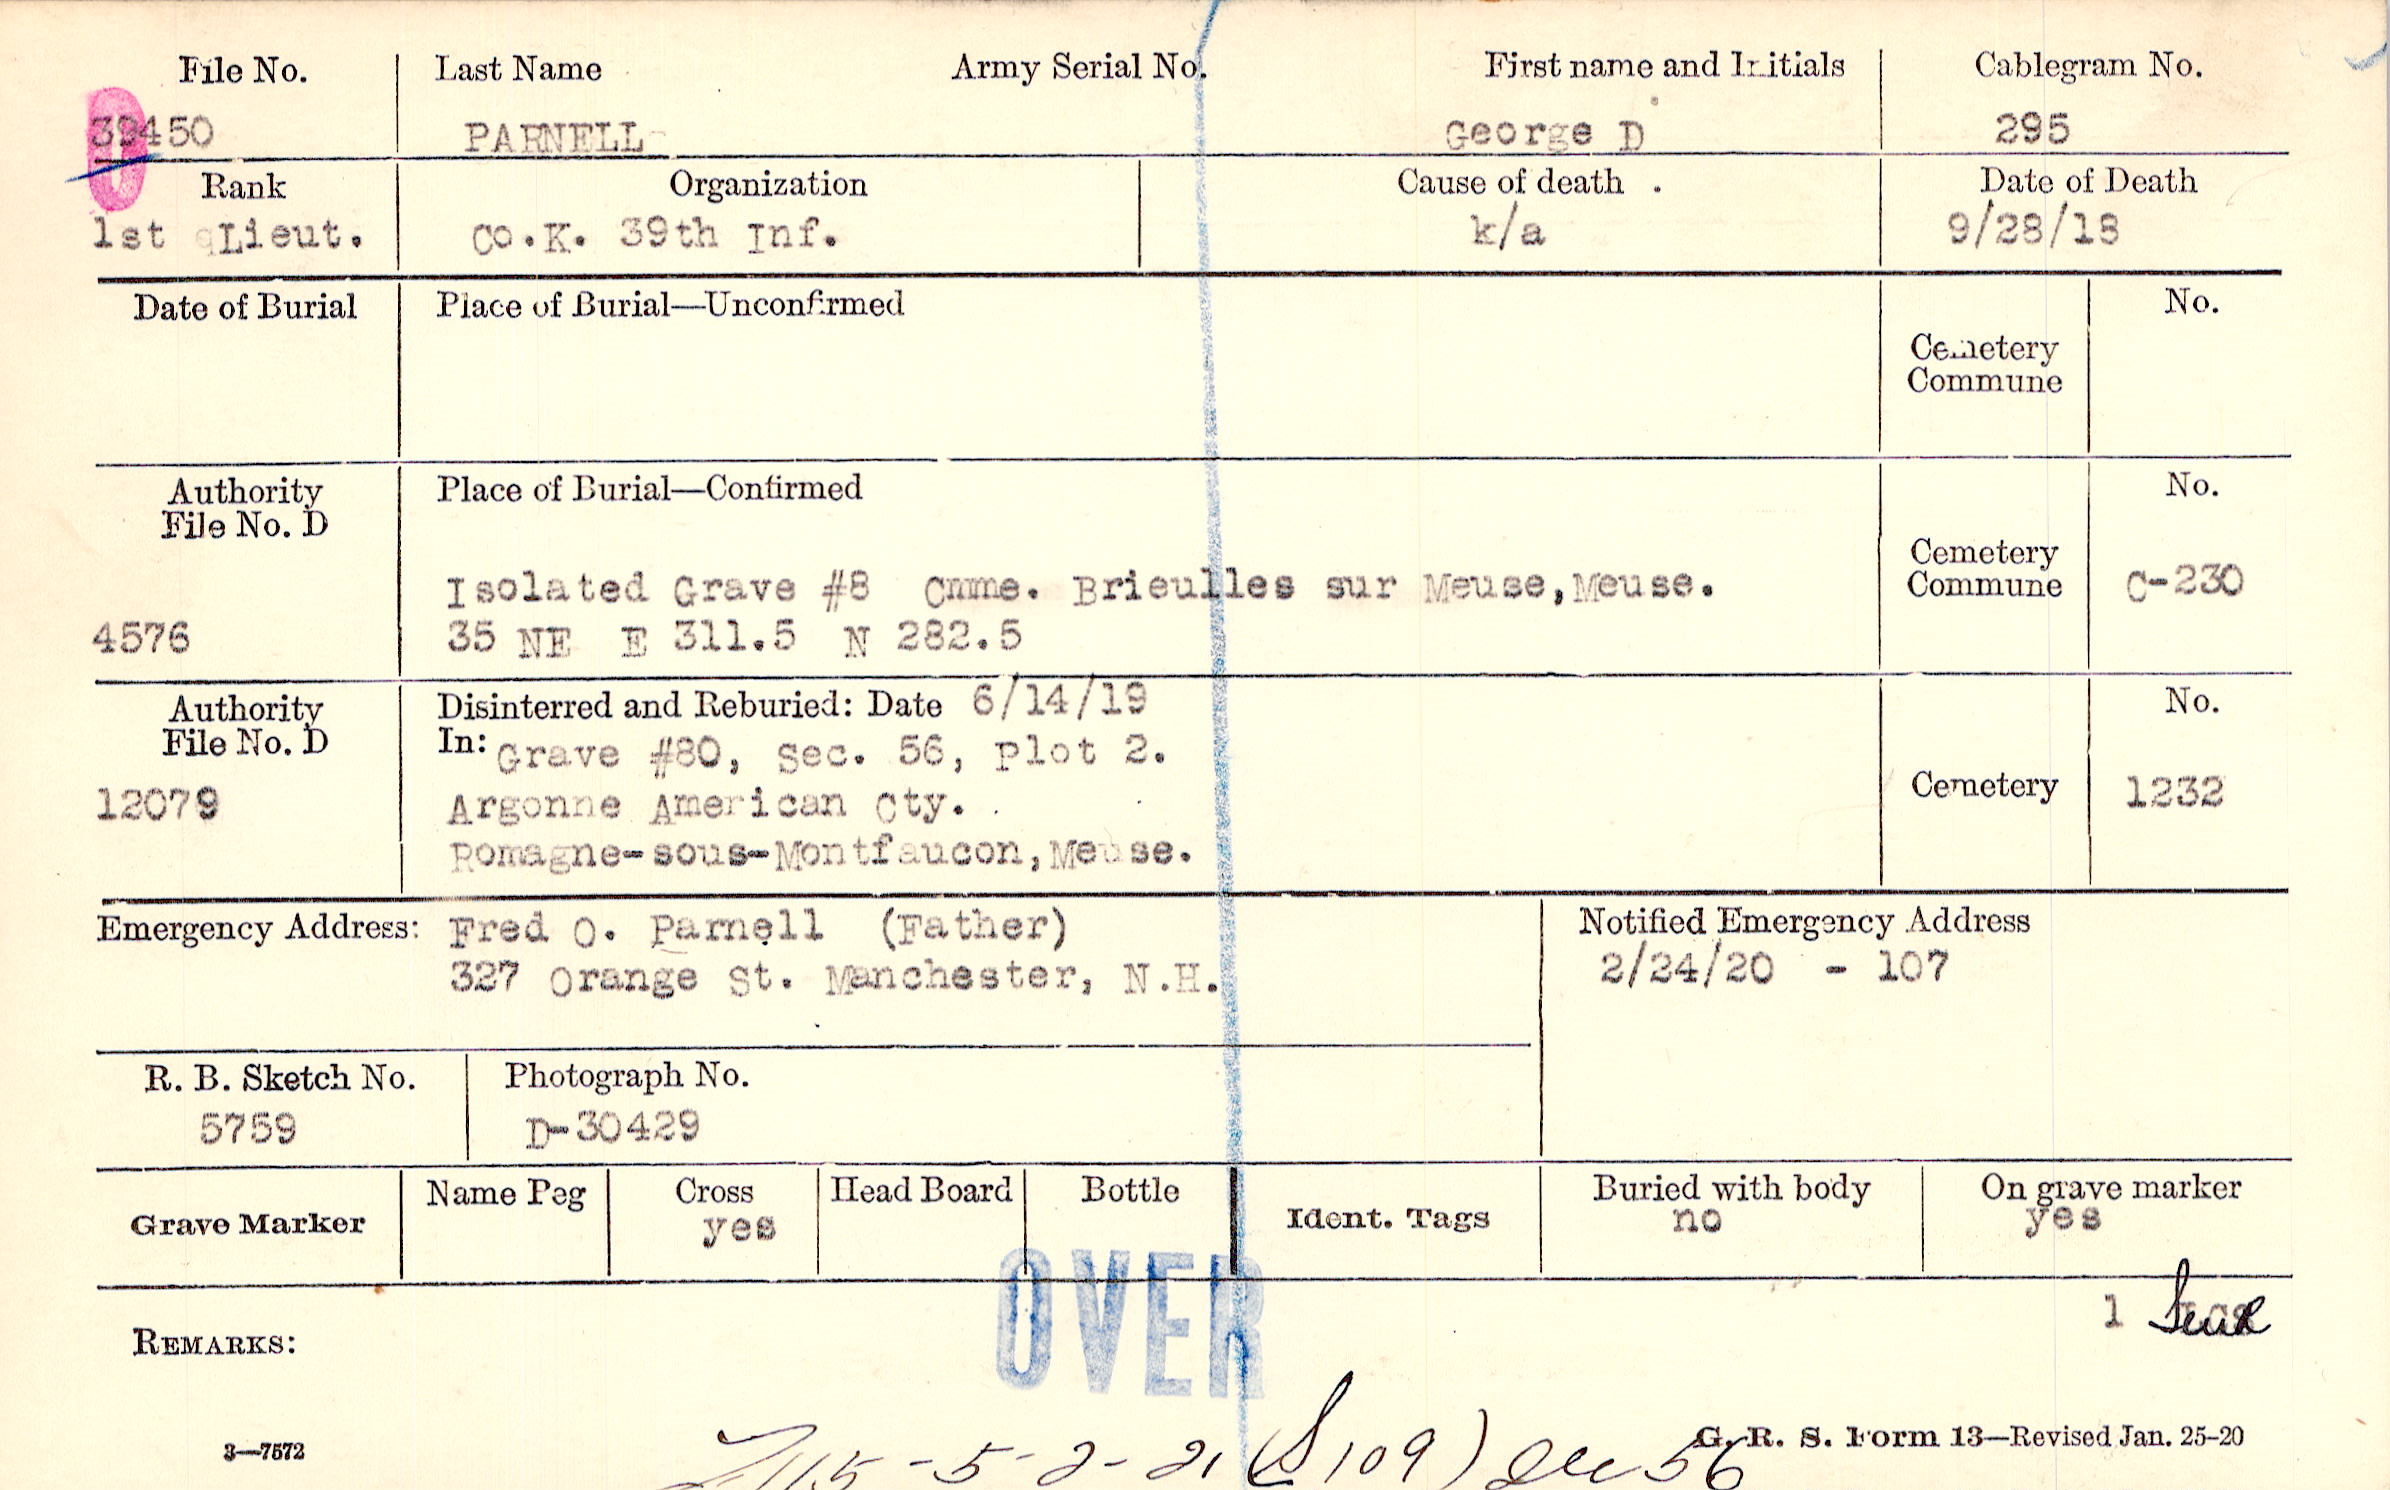 File No. Last Name Army Serial No. First name and Initials Cablegram No.
39450 PARNELL George D 295
Rank Organization Cause of death Date of Death
1st Lieut. Co.K. 39th Inf. k/a 9/28/18
Date of Burial Place of Burial—Unconfirmed No.
Cemetery
Commune
Authority Place of Burial—Confirmed No.
File No. D
Cemetery
Isolated Grave #8 Cmme. Brieulles sur Meuse,Meuse. Commune C-230
4576 35 NE E 311.5 N 282.5
Authority Disinterred and Reburied: Date 6/14/19 No.
File No. D In: Grave #80, Sec. 56, Plot 2.
12079 Argonne American Cty. Cemetery 1232
Romagne-sous-Montfaucon,Meuse.
Emergency Address: Fred O. Parnell (Father) Notified Emergency Address
327 Orange St. Manchester, N.H. 2/24/20 - 107
R. B. Sketch No. Photograph No.
5759 D-30429
Grave Marker Name Peg Cross Head Board Bottle Ident. Tags Buried with body On grave marker
yes no yes
OVER
1
REMARKS:
3—7572 G. R. S. Form 13—Revised Jan. 25-20
5-2-21 (S 109) 56